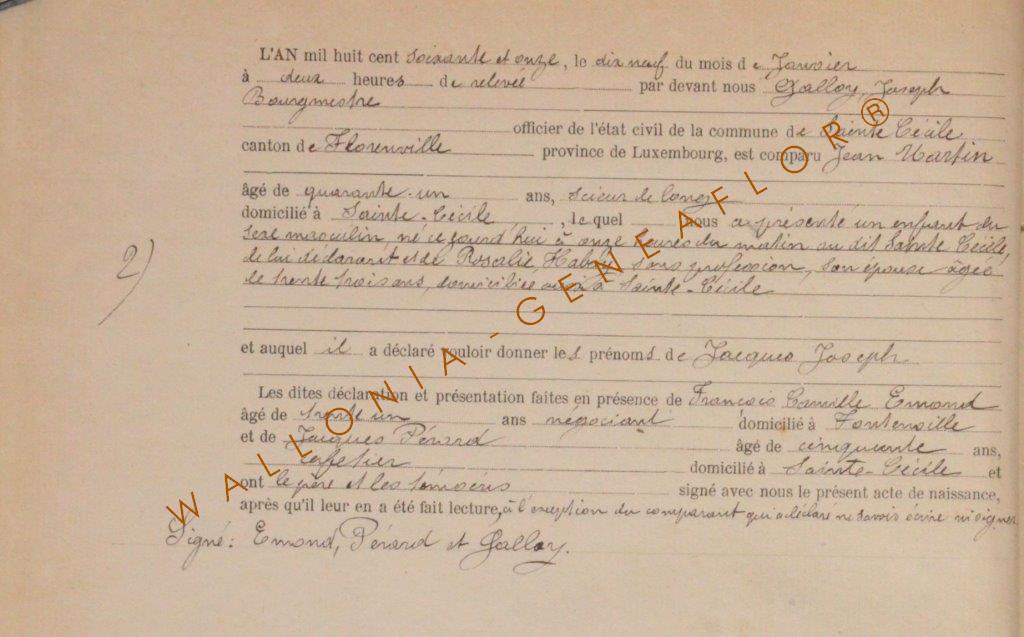 L'AN mil huit cent soixante et onze, le dix neuf du mois de Janvier
à deux heures de relevée par devant nous Galloy, Joseph
Bourgmestre
officier de l'état civil de la commune de Sainte Cécile
canton de Florenville province de Luxembourg, est comparu Jean Martin
âgé de quarante-un ans, scieur de long
domicilié à Sainte-Cécile, le quel nous a présenté un enfant du
sexe masculin, né ce jourd'hui à onze heures du matin au dit Sainte Cécile,
de lui déclarant et de Rosalie, sans profession, son épouse âgée
de trente trois ans, domiciliée aussi à Sainte-Cécile
2)
et auquel il a déclaré vouloir donner les prénoms de Jacques Joseph.
Les dites déclaration et présentation faites en présence de François Camille Emond
âgé de trente un ans négociant domicilié à Fontenoille
et de Jacques Pérard âgé de cinquante ans,
cafetier domicilié à Sainte-Cécile et
ont le père et les témoins signé avec nous le présent acte de naissance,
après qu'il leur en a été fait lecture, à l'exception du comparant qui a déclaré ne savoir écrire ni signer
Signé: Emond, Pérard et Galloy.
WALLONIA-GENEAFLOR®